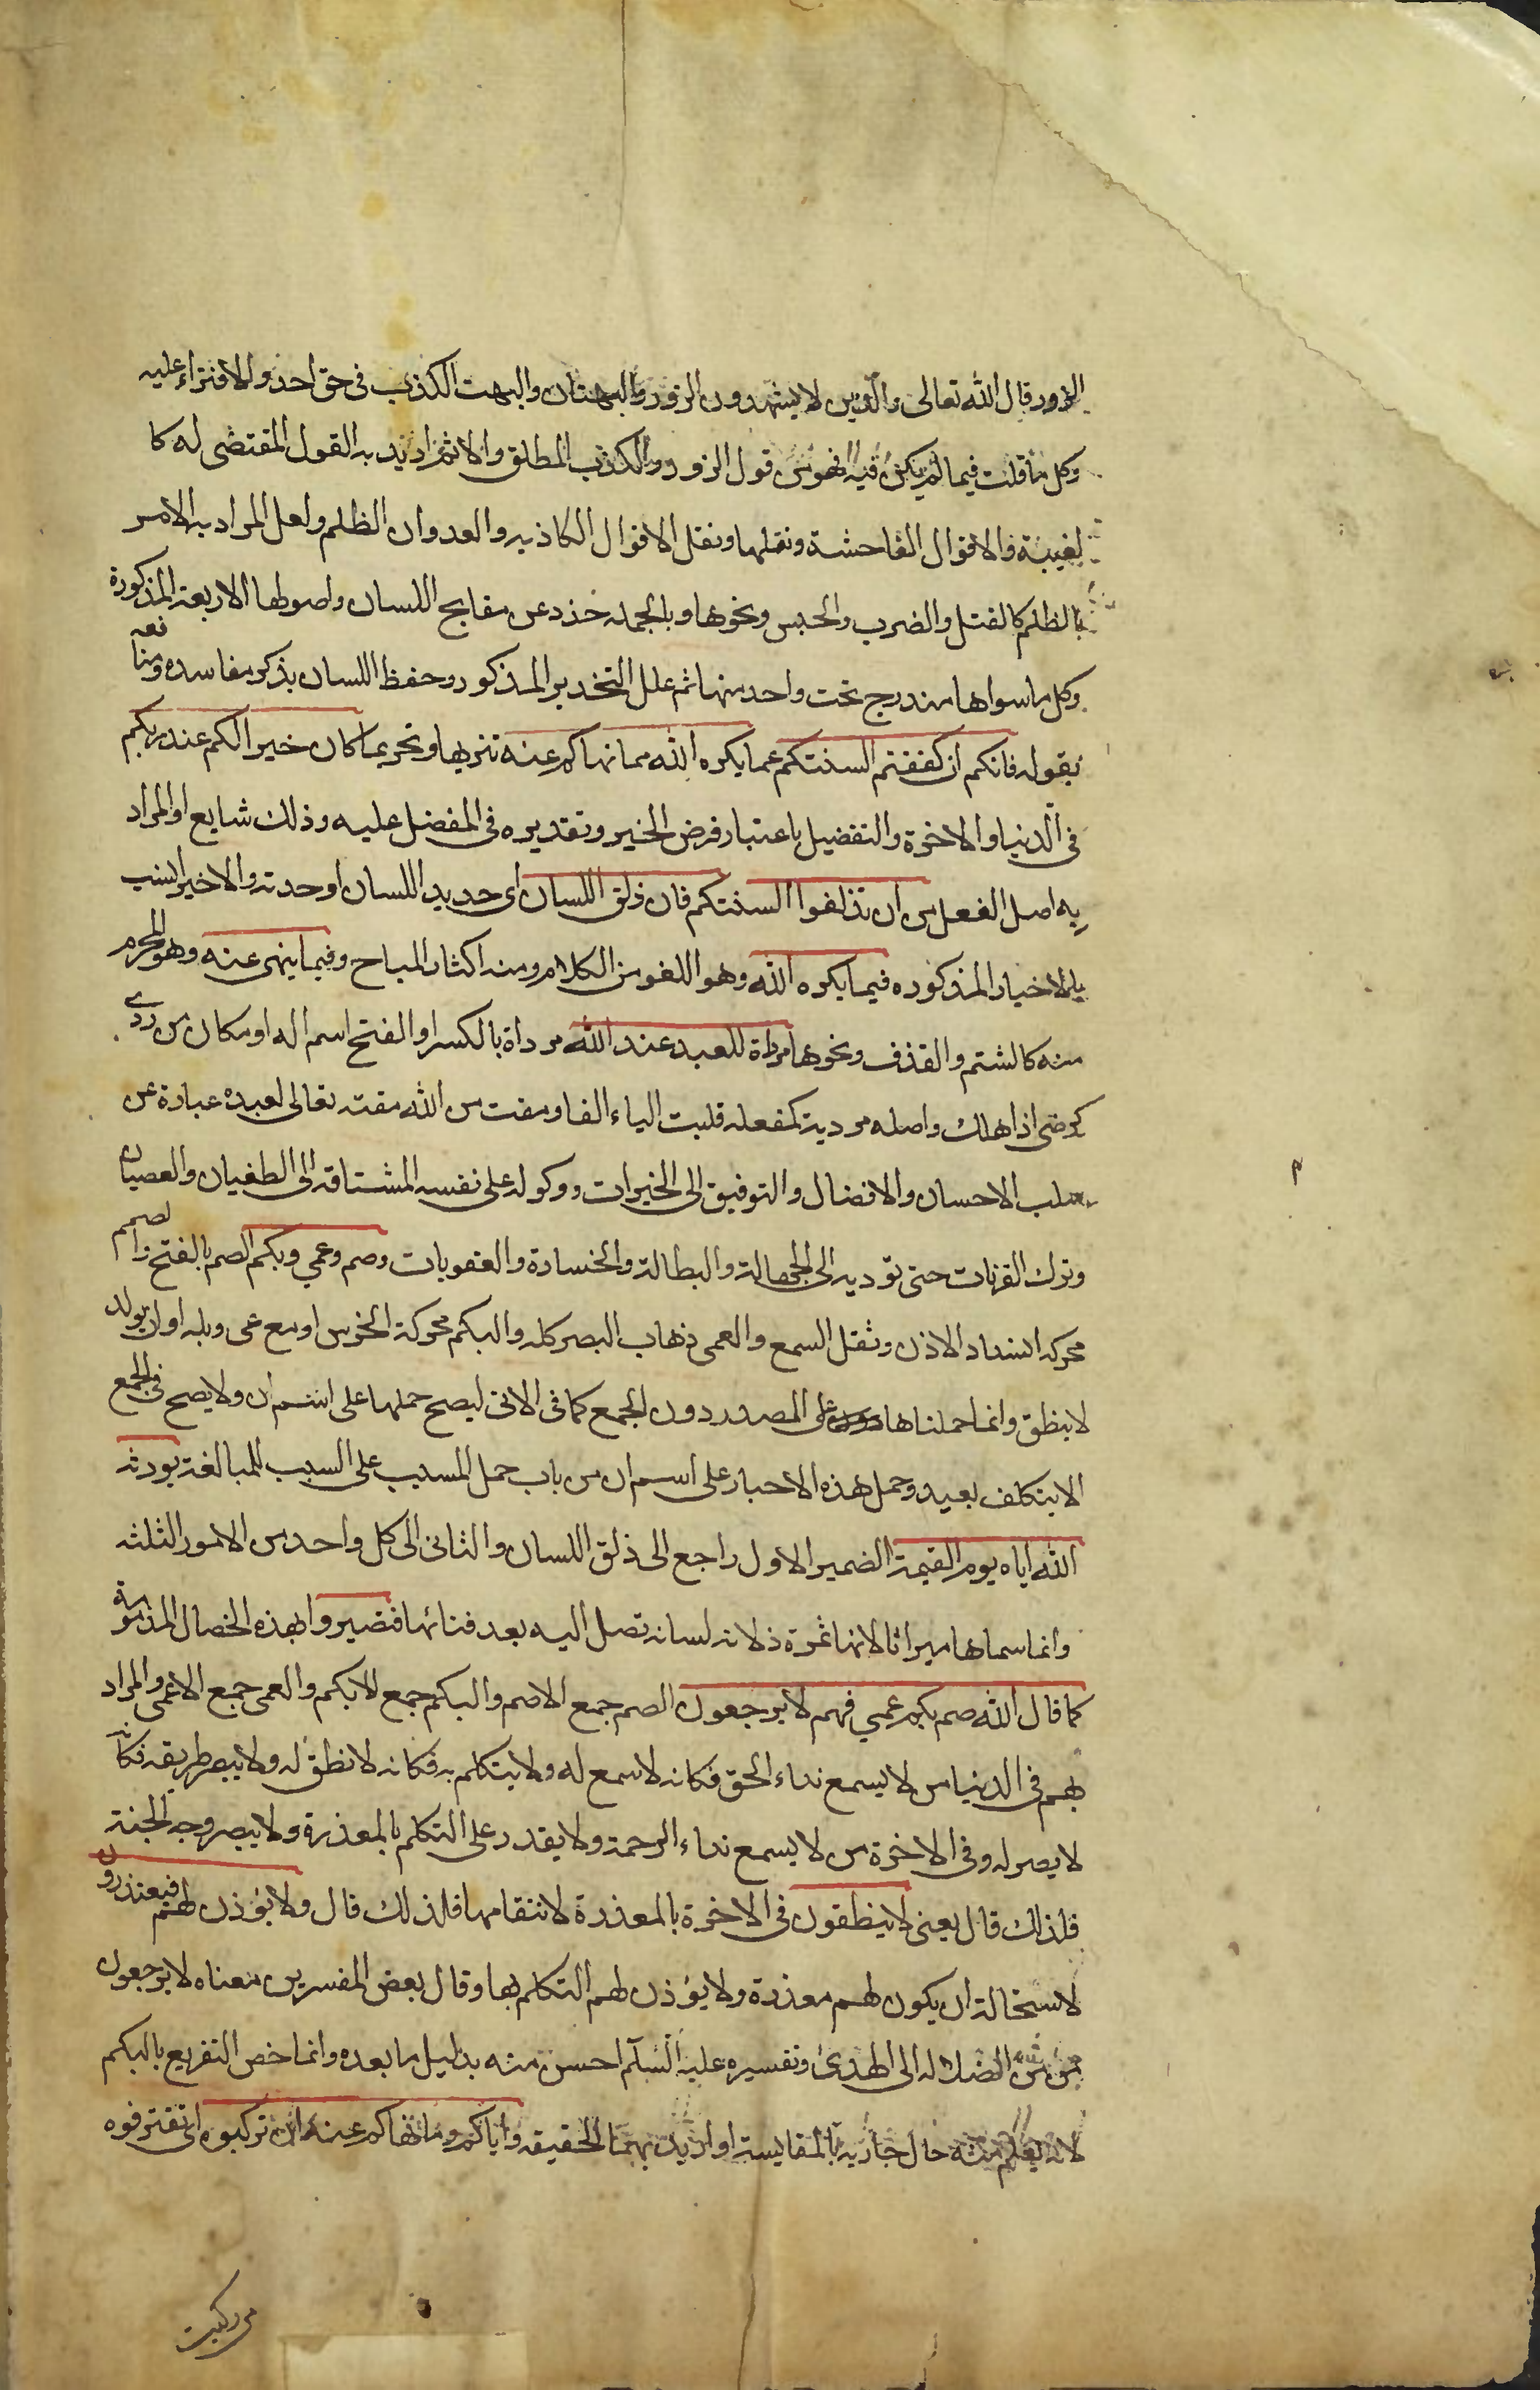 الزور قال الله تعالى والذين لا يشهدون الزور والبهتان والبهت الكذب فى حق احد والافتراء عليه
وكل ما قلت فيما لم يكن فيه فهو من قول الزور والكذب المطلق والاثم اريد به القول المقتضى له كا
لغيبة والاقوال الفاحشة ونقلها ونقل الاقوال الكاذبه والعدوان الظلم ولعل المراد به الامر
بالظلم كالقتل والضرب والحبس ونحوها وبالجمله حذر عن مقابح اللسان واصولها الاربعة المذكورة
وكل ما سواها مندرج تحت واحد منها ثم علل التحذير المذكور وحفظ اللسان بذكر مفاسده ومنا فعه
بقوله فانكم ان كففتم السنتكم عما يكره الله مما نهاكم عنه تنزيها وتحريما كان خيرا لكم عند ربكم
فى الدنيا والاخرة والتفضيل باعتبار فرض الخير وتقديره فى المفضل عليه وذلك شايع او المراد
به اصل الفعل من ان تذلقوا السنتكم فان ذلق اللسان اى حديد اللسان او حدته والاخير انسب
بالاخبار المذكوره فيما يكره الله وهو اللغو من الكلام ومنه اكثار المباح وفيما ينهى عنه وهو المحرم
منه كالشتم والقذف ونحوها مرداة للعبد عند الله مرداة بالكسر او الفتح اسم اله او مكان من ردى
كرضى اذا هلك واصله مردية كمفعله قلبت الياء الفا ومقت من الله مقته تعالى لعبده عبارة عن
سلب الاحسان والافضال والتوفيق الى الخيرات ووكوله على نفسه المشتاقه الى الطغيان والعصيان
وترك القربات حتى توديه الى الجهالة والبطالة والخسارة والعقوبات وصم وعمي وبكم الصم بالفتح و الصمم
محركه انسداد الاذن وثقل السمع والعمى ذهاب البصر كله والبكم محركة الخرس او مع عى وبله او ان يولد
لا ينطق وانما حملناها على المصدر دون الجمع كما فى الاتى ليصح حملها على اسم ان ولا يصح فى الجمع
الا بتكلف بعيد وحمل هذه الاخبار على اسم ان من باب حمل المسبب على السبب للمبالغة يورثه
الله اياه يوم القيمة الضمير الاول راجع الى ذلق اللسان والثانى الى كل واحد من الامور الثلثه
وانما سماها ميراثا لانها ثمرة ذلاقه لسانه تصل اليه بعد فنائها فتصيروا بهذه الخصال المذمومة
كما قال الله صم بكم عمي فهم لا يرجعون الصم جمع الاصم والبكم جمع الابكم والعمى جمع الاعمى والمراد
بهم فى الدنيا من لا يسمع نداء الحق فكانه لا سمع له ولا يتكلم به فكانه لا نطق له ولا يبصر طريقه فكانه
لا بصر له وفى الاخرة من لا يسمع نداء الرحمة ولا يقدر على التكلم بالمعذرة ولا يبصر وجه الجنة
فلذلك قال يعنى لا ينطقون فى الاخرة بالمعذرة لانتفائها فلذلك قال ولا يؤذن لهم فيعتذرون
لاستحالة ان يكون لهم معذرة ولا يؤذن لهم التكلم بها وقال بعض المفسرين معناه لا يرجعون
من الضلاله الى الهدى وتفسيره عليه السلام احسن منه بدليل ما بعده وانما خص التفريع بالبكم
لانه يعلم منه حال جاريه بالمقايسة او اريد بهما الحقيقه واياكم وما نهاكم عنه ان تركبوه اى تقترفوه